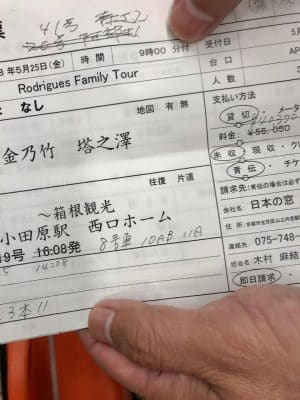 票
41号
8年5月25日(金) 時間 9時00分付
受付日 5月
Rodrigues Family Tour
台口 AP
人数
なし
地図 有 無
支払い方法
貸切・メータ
金乃竹 塔之澤
料金: ¥55,050
未収・現収・ク
青伝・チケ
往復 片道
請求先(貴信の場合は必ず
~箱根観光
会社名: 日本の窓
小田原駅 西口ホーム
19号 16:08発
8号車 10AB 11A
14:08
連絡先 075-748-
担当名 木村 麻結
即日請求
3本 11